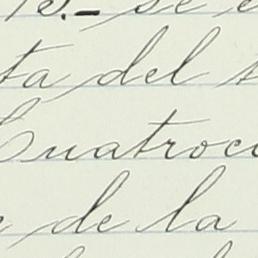 se
ta del
Cuatroci
de la